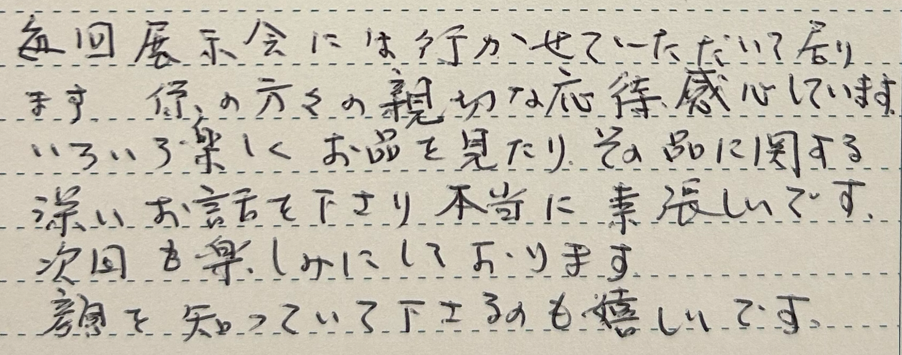 毎回展示会には行かせていただいて居り
ます 係の方々の親切な応待、感心しています
いろいろ楽しく お品を見たり、その品に関する
深いお話を下さり 本当に素張しいです。
次回も楽しみにしております
顔を知っていて下さるのも嬉しいです。